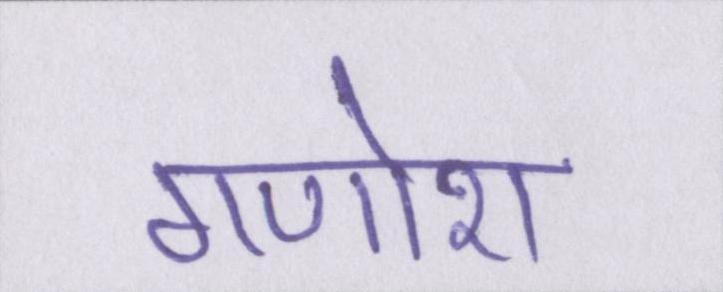 गणेश